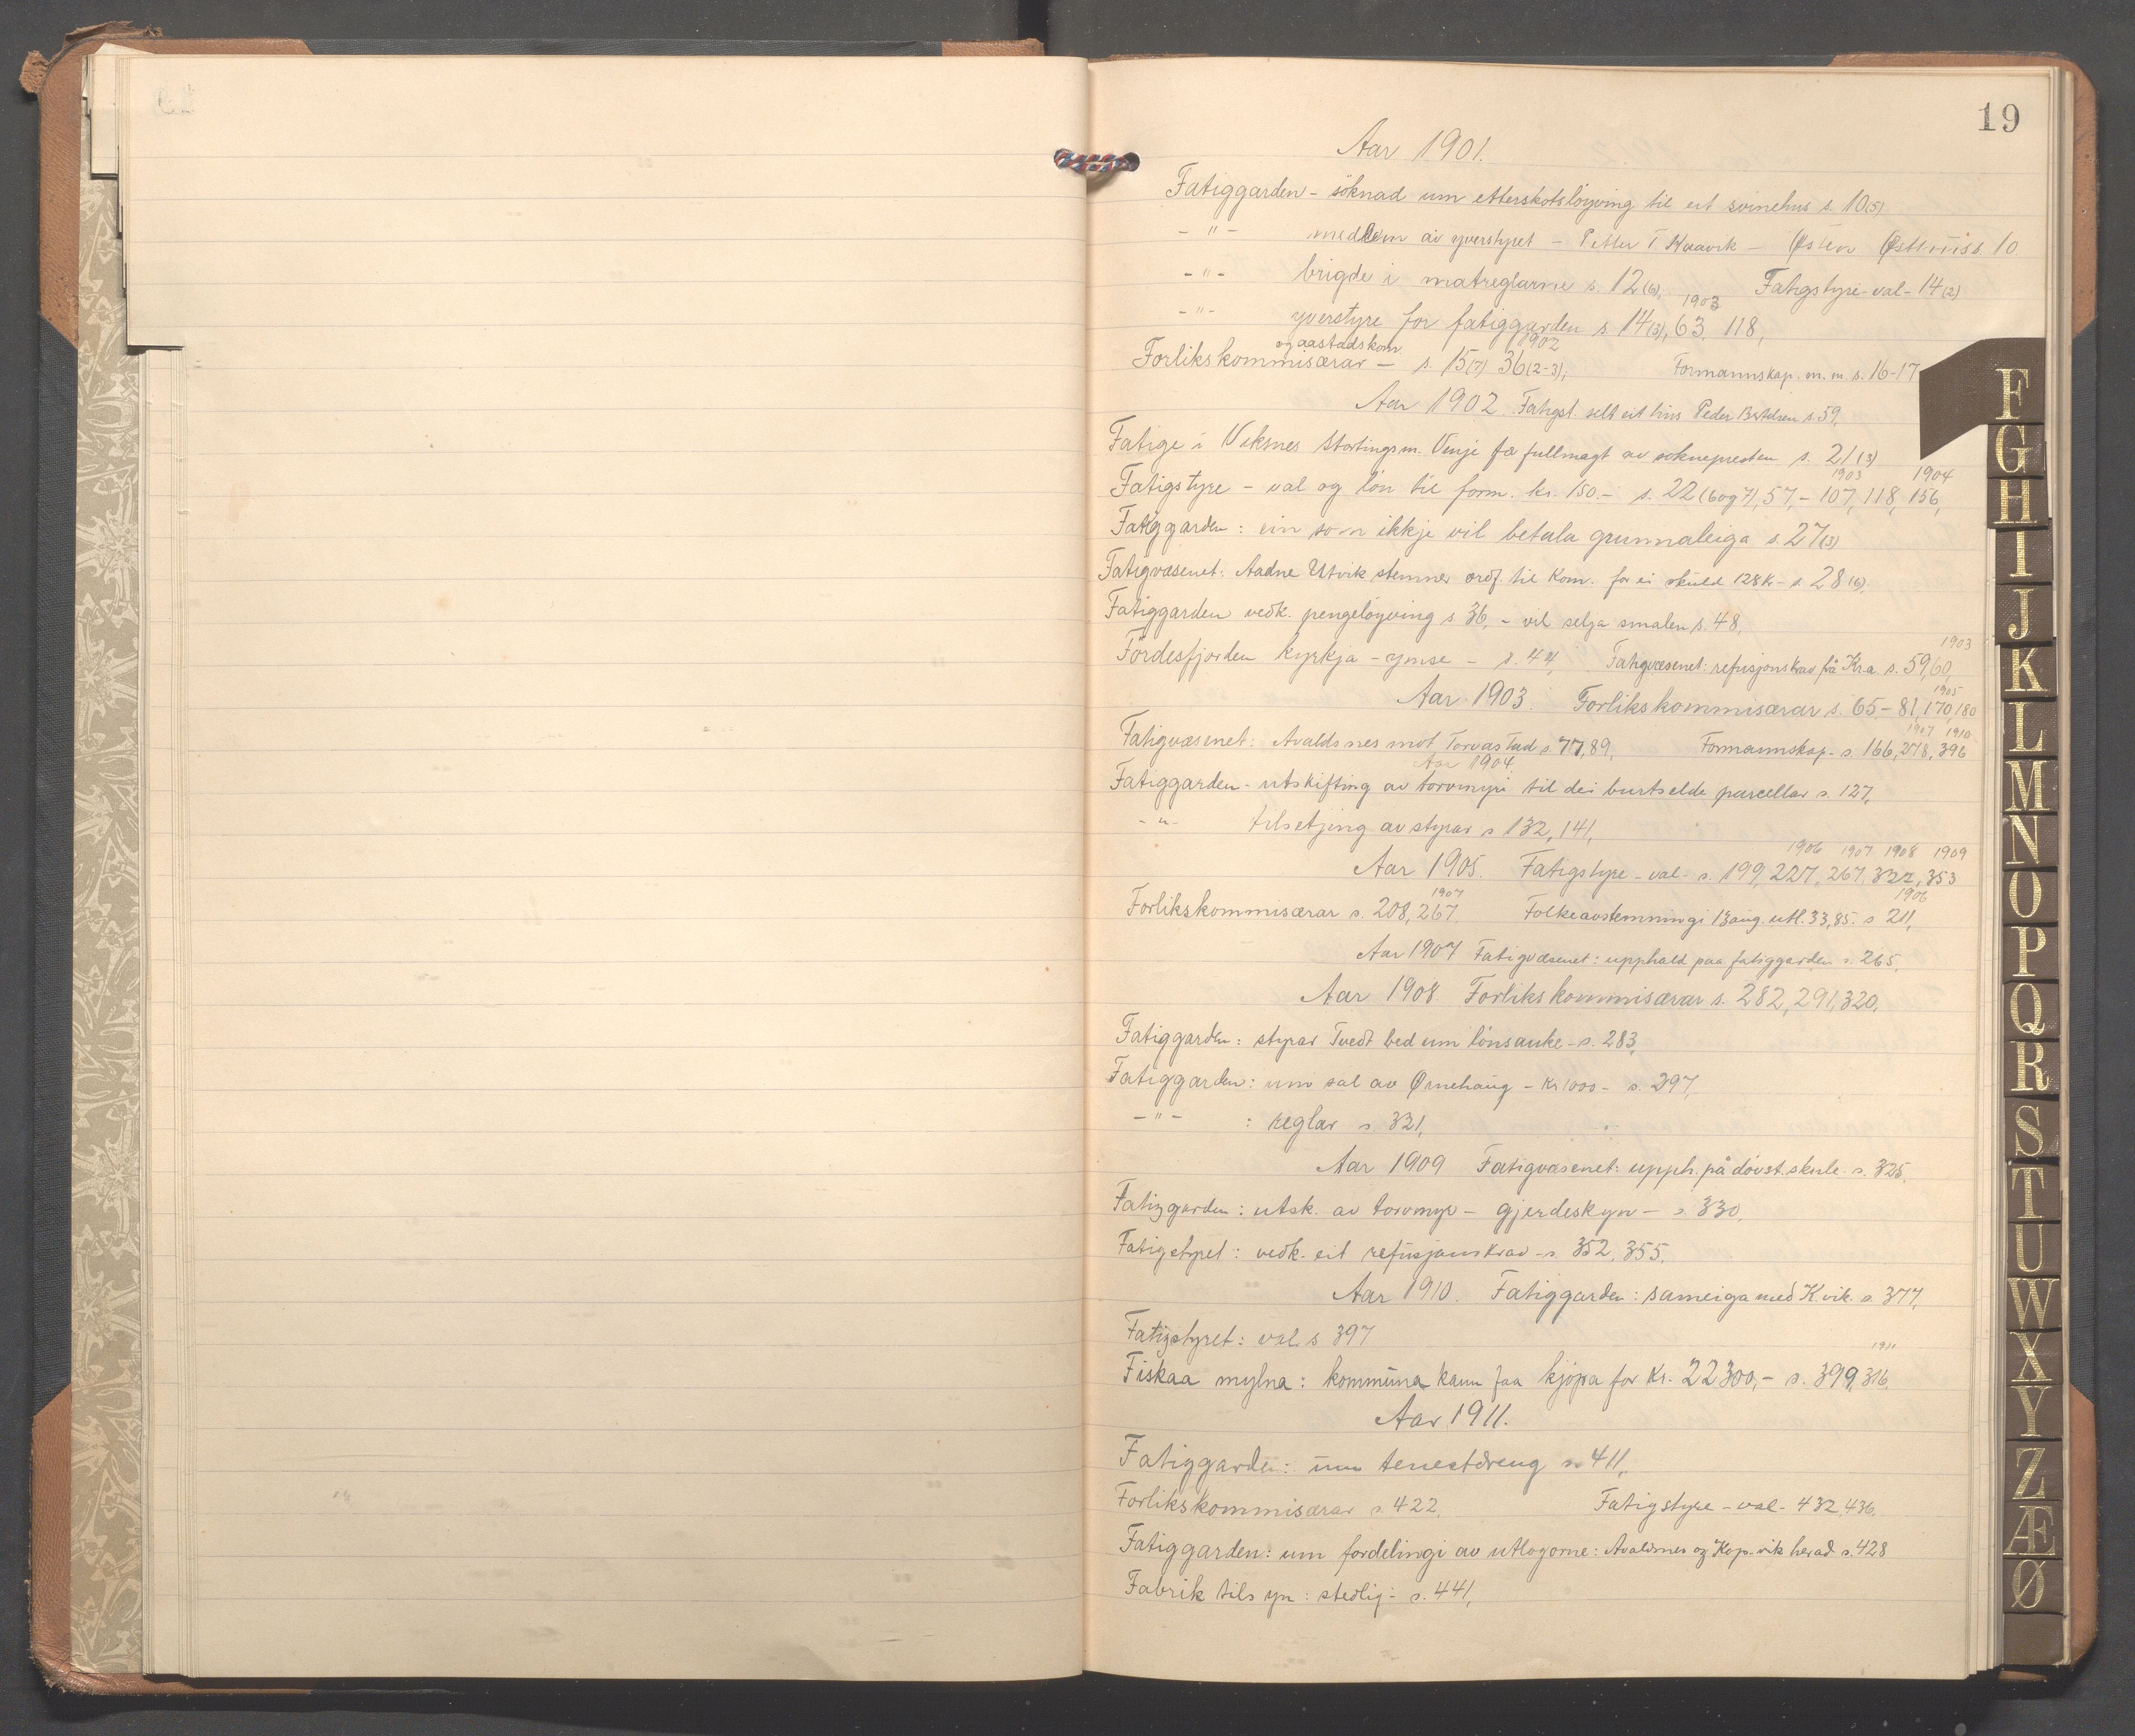 19
Aar 1901.
Fatiggarden - söknad um etterskotsløyving til eit svinehus s. 10(5)
- " - medlem av yverstyret - Petter T Kvavik - Østen Østhus s. 10.
- " - brigde i matreglarne s. 12(6), Fatigstyre-val- 14(2)
1903
- " - yverstyre for fatiggarden s 14(3), 63, 118,
og aastadskom 1902
Forlikskommisærar - s. 15(7) 36(2-3), Formannskap. m. m. s. 16-17
Aar 1902. Fatigst. selt eit hus Peder Bertelsen s. 59,
Fatige i Viksnes Stortingsm. Vinje fær fullmagt av soknepresten s. 21(3)
1903 1904
Fatigstyre - val og lön til form. kr. 150.- s. 22 (6 og 7), 57, - 107, 118, 156,
Fatiggarden: ein som ikkje vil betala grunnaleiga s. 27(3)
Fatigvæsenet: Aadne Utvik stemner ordf. til Kom. for ei skuld 128 Kr - s 28(6).
Fatiggarden vedk. pengeløyving s 36, - vil selja smalen s. 48,
1903
Fördesfjorden kyrkja - ymse - s. 44, Fatigvæsenet: refusjonskrav frå Kr.a. s. 59, 60,
1905
Aar 1903. Forlikskommisærar s. 65 - 81, 170, 180
1907 1910
Fatigvæsenet: Avaldsnes mot Torvastad s. 77, 89, Formannskap - s 166, 278, 396
Aar 1904.
Fatiggarden - utskifting av torvmyri til dei burtselde parcellar s. 127,
- " - tilsetjing av styrar s 132, 141,
1906 1907 1908 1909
Aar 1905. Fatigstyre - val - s. 199, 227, 267, 322, 353
1907 1906
Forlikskommisærar s. 208, 267. Folkeavstemningi 13 aug. utl. 33,85. s 211,
Aar 1907 Fatigvæsenet: upphald paa fatiggarden s. 265,
Aar 1908. Forlikskommisærar s. 282, 291, 320,
Fatiggarden: styrar Tvedt bed um lönsauke - s. 283,
Fatiggarden: um sal av Ørnehaug - Kr 1000 - s. 297,
- " - : reglar s. 321,
Aar 1909 Fatigvæsenet: upph. på døvst. skule - s. 325,
Fatiggarden: utsk. av torvmyr - gjerdeskyn - s 330,
Fatigstyret: vedk. eit refusjonskrav - s. 352, 355,
Aar 1910. Fatiggarden: sameiga med K.vik. s. 377,
Fatigstyret: val s 397
1911
Fiskaa mylna: kommuna kann faa kjøpa for Kr. 22300,- s. 399, 316,
Aar 1911.
Fatiggarden: um tenestdreng s. 411,
Forlikskommisærar s. 422, Fatigstyre - val - 432, 436,
Fatiggarden: um fordelingi av utlogorne: Avaldsnes og Kop.vik herad s. 428
Fabrik tilsyn: stedlig - s. 441,
F
G
H
I
J
K
L
M
N
O
P
Q
R
S
T
U
W
X
Y
Z
Æ
Ø